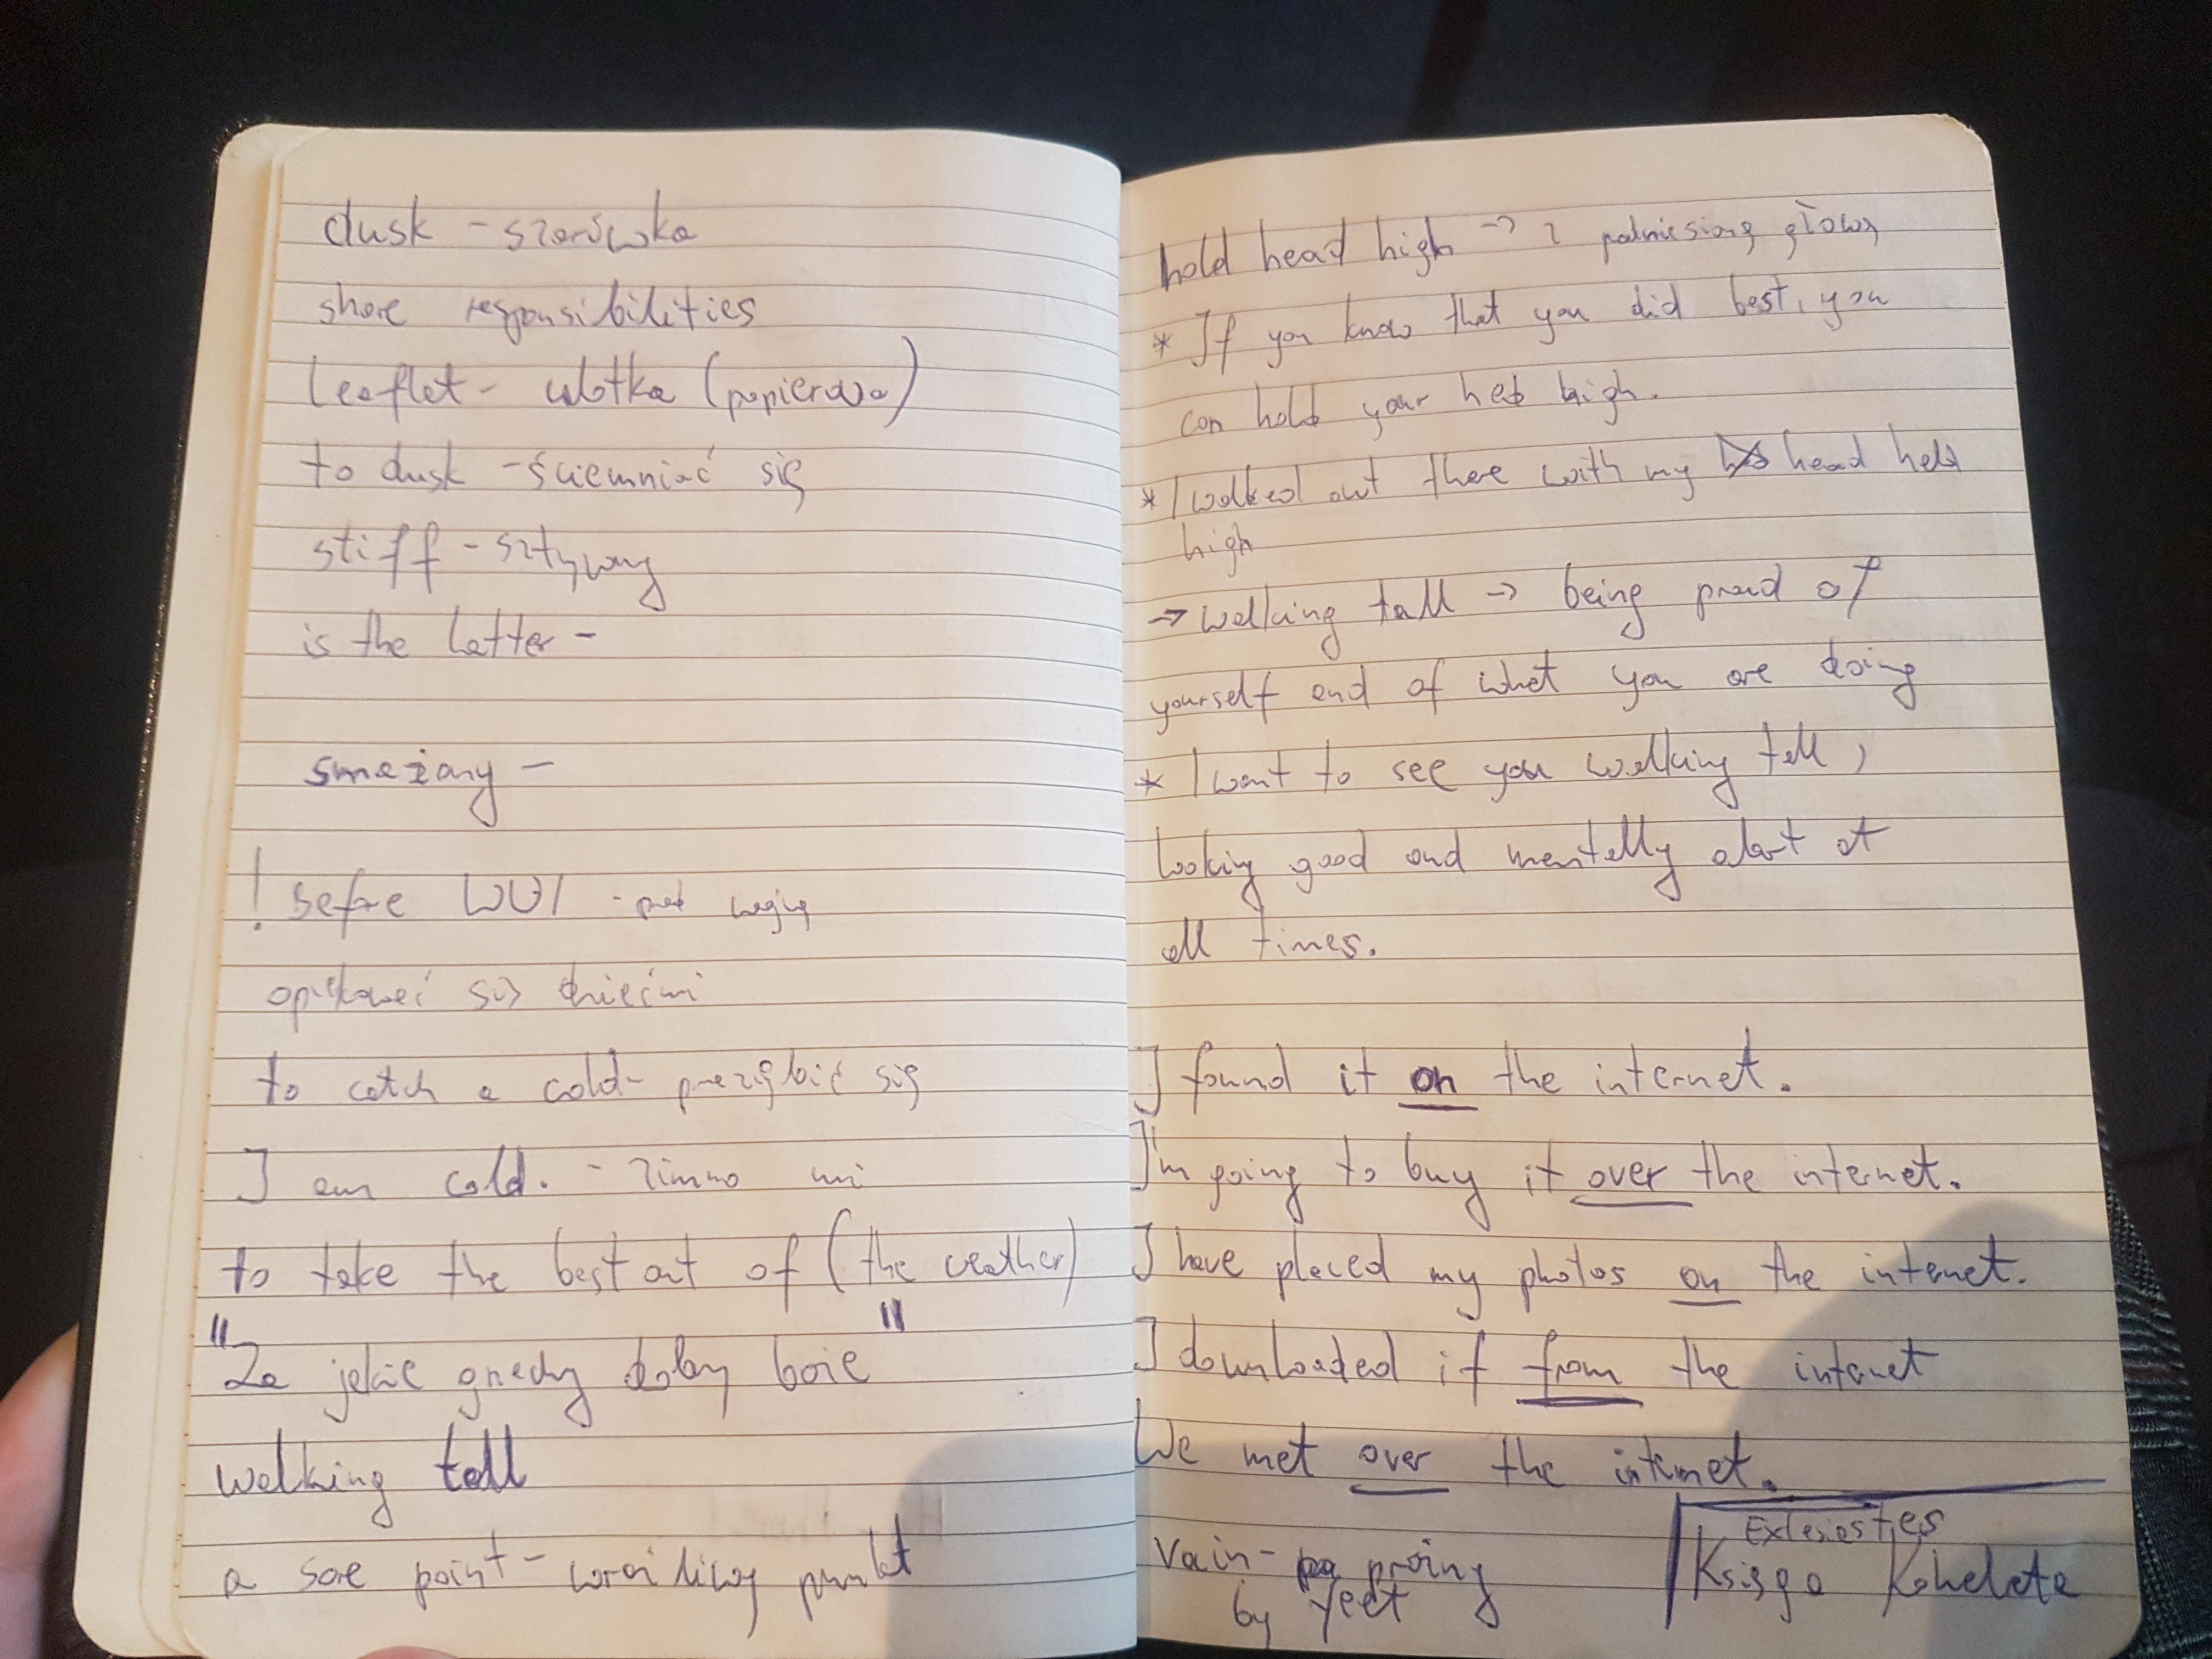 dusk - szarówka
share responsibilities
leaflet - ulotka (papierowa)
to dusk - ściemniać się
stiff - sztywny
is the latter -
smażony -
! before WW1 - pod
opiekować się dziećmi
to catch a cold - przeziębić się
I am cold. - zimno mi
to take the best out of (the weather)
"Za jakie grzechy dobry boże"
Walking tall
a sore point - wrażliwy punkt
hold head high -> z podniesioną głową
* If you know that you did best, you
can hold your head high.
* I walked out there with my head held
high
-> Walking tall -> being proud of
yourself and of what you are doing
* I want to see you walking tall,
looking good and mentally alert at
all times.
I found it on the internet.
I'm going to buy it over the internet.
I have placed my photos on the internet.
I downloaded it from the internet
We met over the internet.
Vain - próżny
by
Księga Koheleta